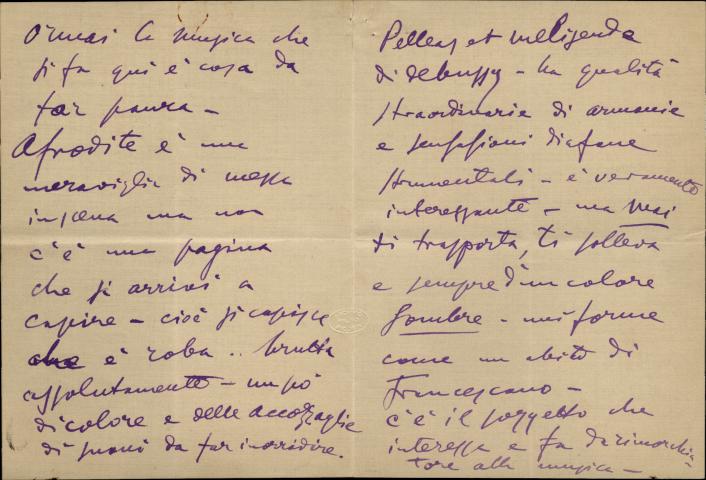 Ormai la musica che
si fa qui è cosa da
far paura –
Afrodite è una
meraviglia di messa
in scena ma non
c'è una pagina
che si arrivi a
capire – cioè si capisce
che è roba .. brutta
assolutamente – un pò
di colore e delle accozzaglie
di suoni da far inorridire.
Pelleas et Melisenda
di debussy – ha qualità
straordinarie di armonie
e sensazioni diafane
strumentali – è veramente
interessante – ma mai
ti trasporta, ti solleva
e sempre d'un colore
sombre – uniforme
come un abito di
francescano –
c'è il soggetto che
interessa e fa da rimorchia-
tore alla musica –